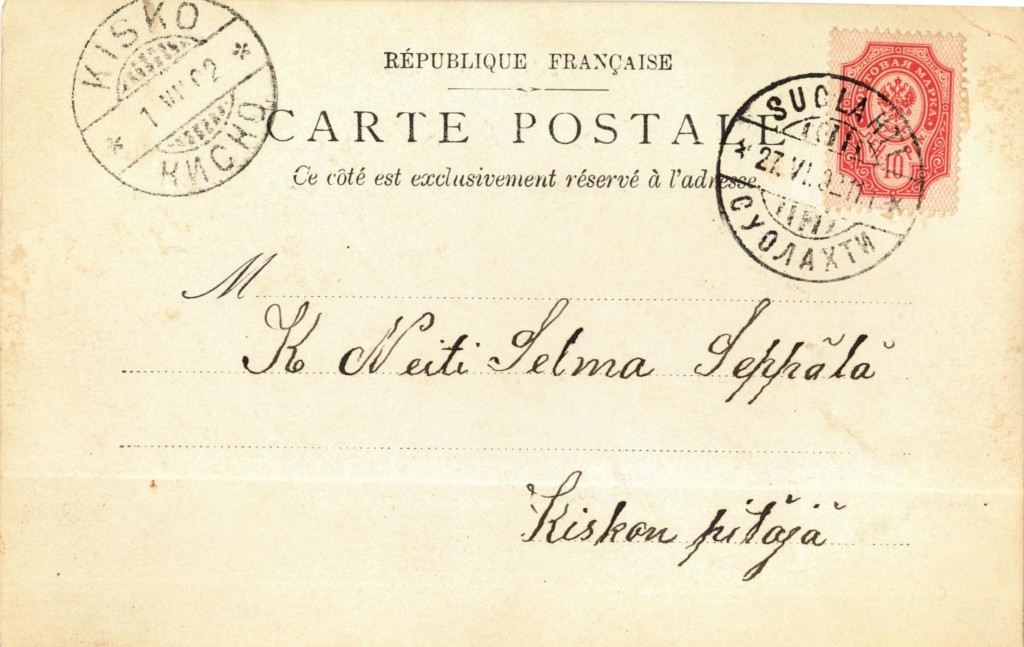 KISKO
1 VII 02
КИСКО
RÉPUBLIQUE FRANÇAISE
CARTE POSTALE
Ce côté est exclusivement réservé à l'adresse
SUOLAHTI
27. VI. 02
СУОЛАХТИ
ПОЧТОВАЯ МАРКА
10
M
K Neiti Selma Seppälä
Kiskon pitäjä